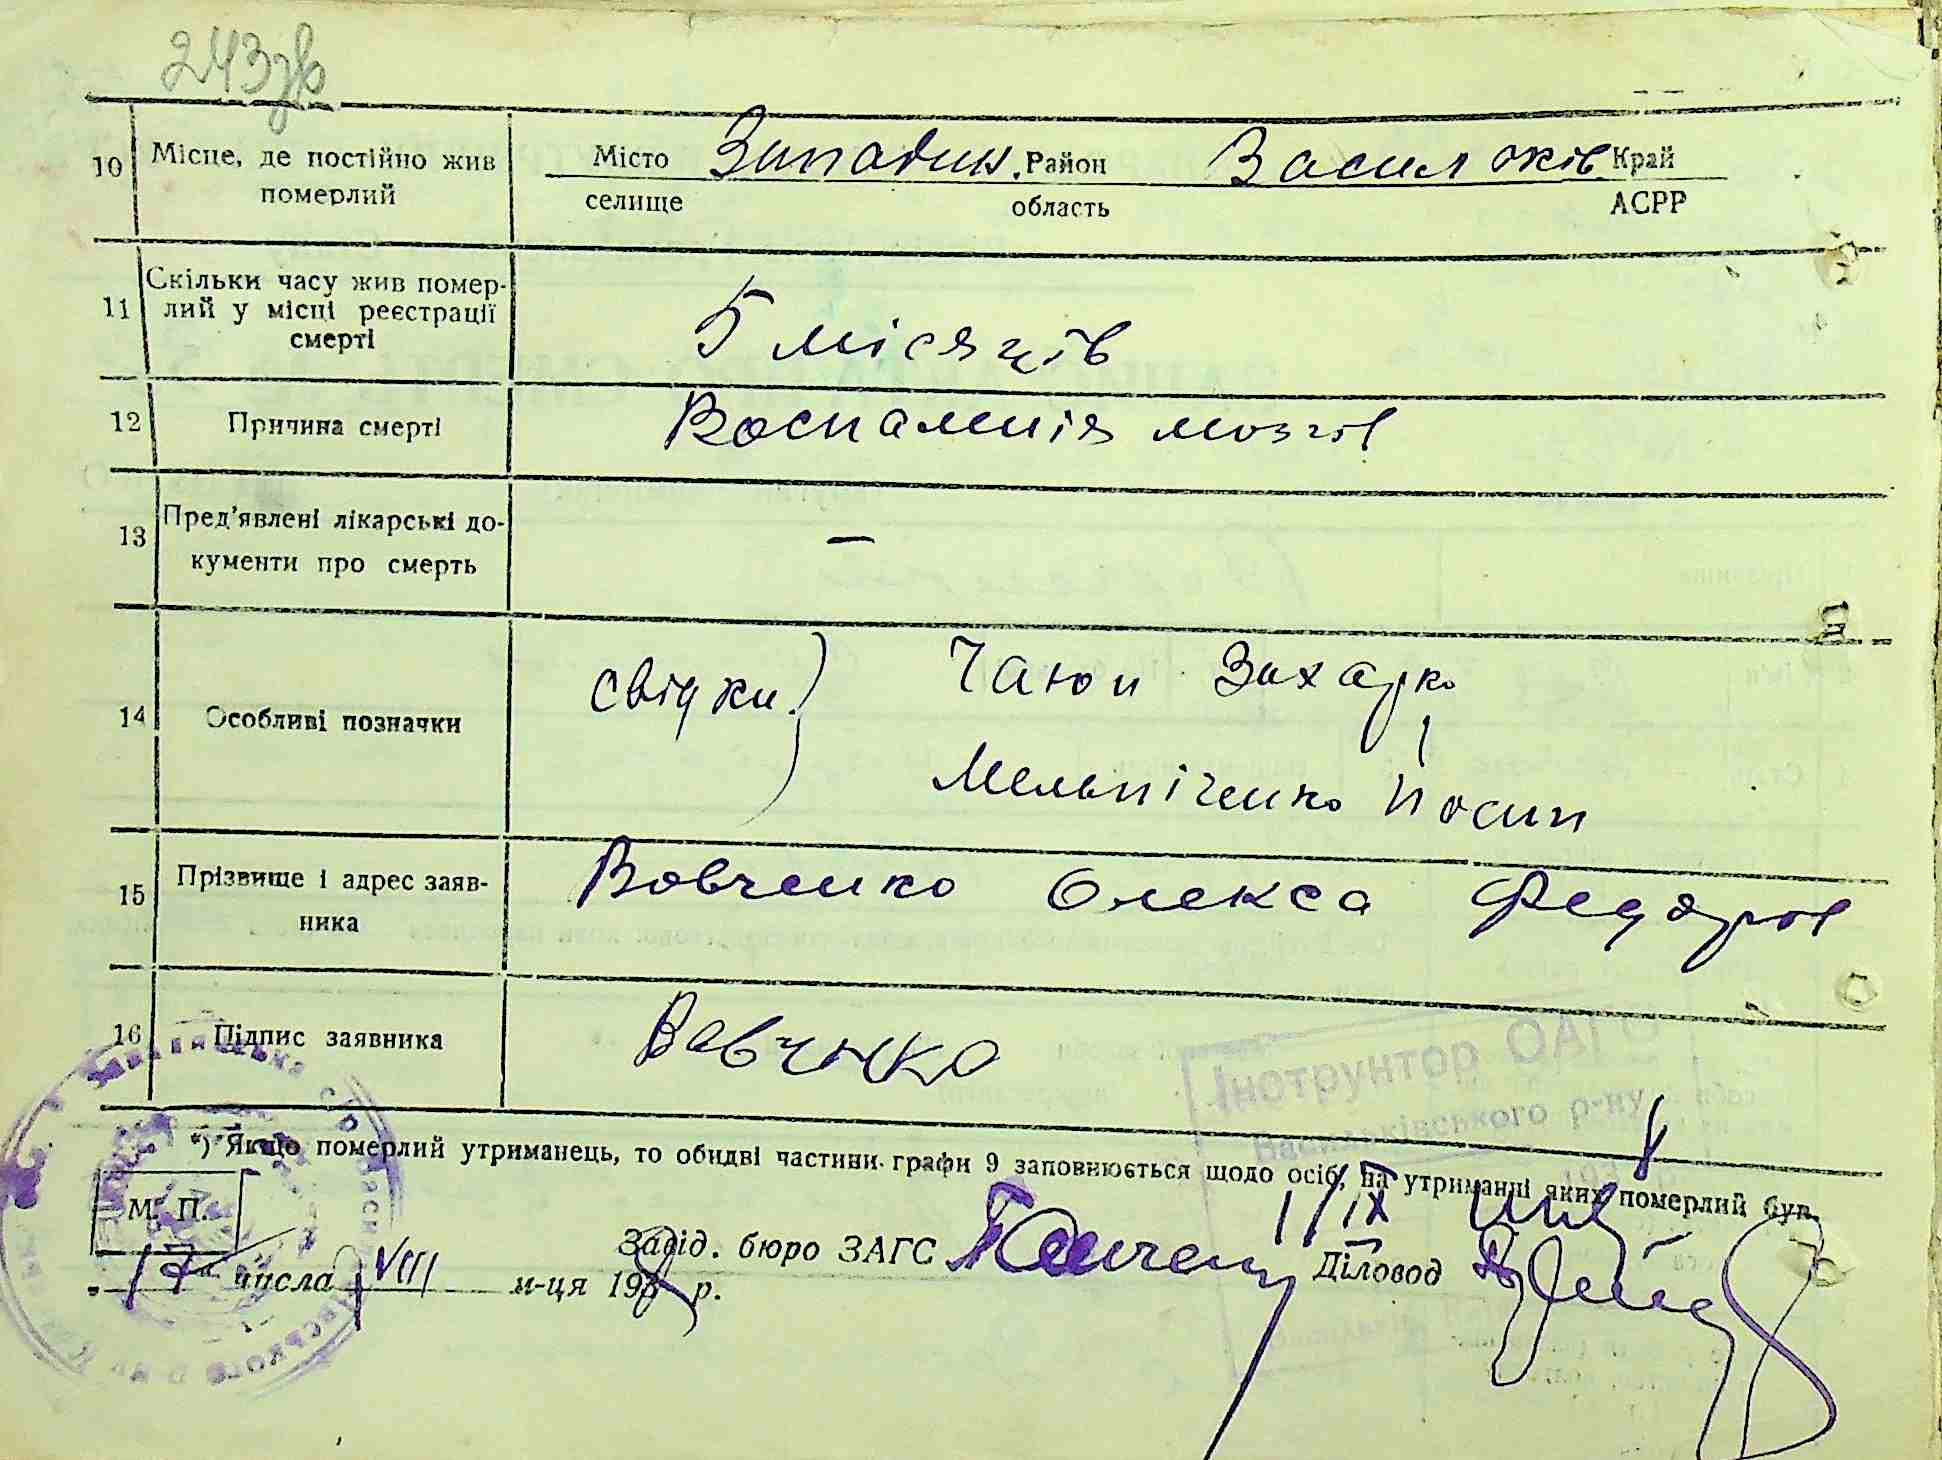 243зв
10 Місце, де постійно жив померлий
Місто Западин. Район Васильків. Край
селище область АСРР
11 Скільки часу жив помер-
лий у місці реєстрації
смерті
5 місяців
12 Причина смерті Воспаления мозгов
13 Пред'явлені лікарські до-
кументи про смерть
—
14 Особливі позначки
свідки) Чаюн Захарко
Мельніченко Йосип
15 Прізвище і адрес заяв-
ника
Вовченко Олекса Федоров
16 Підпис заявника Вовченко
Інструктор ОАГС
Васильківського р-ну
*) Якщо померлий утриманець, то обидві частини графи 9 заповнюється щодо осіб, на утриманні яких померлий був.
М. П.
Завід. бюро ЗАГС Діловод
"17" числа VIII м-ця 193 р.